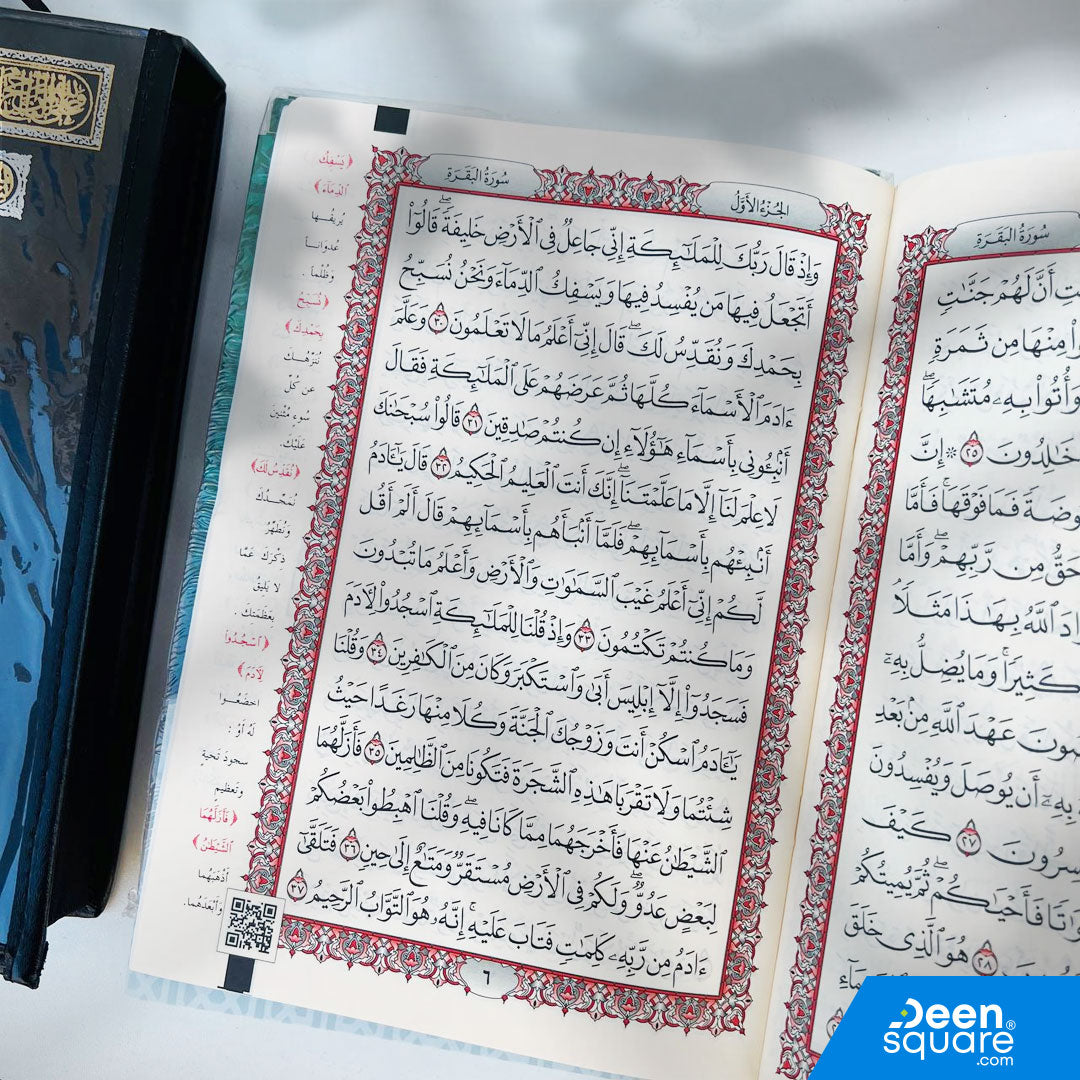 سُورَةُ البَقَرَةِ
الجُزْءُ الأَوَّلُ
وَإِذْ قَالَ رَبُّكَ لِلْمَلَٰٓئِكَةِ إِنِّي جَاعِلٌ فِي ٱلْأَرْضِ خَلِيفَةً ۖ قَالُوٓا۟
أَتَجْعَلُ فِيهَا مَن يُفْسِدُ فِيهَا وَيَسْفِكُ ٱلدِّمَآءَ وَنَحْنُ نُسَبِّحُ
بِحَمْدِكَ وَنُقَدِّسُ لَكَ ۖ قَالَ إِنِّيٓ أَعْلَمُ مَا لَا تَعْلَمُونَ ٣٠ وَعَلَّمَ
ءَادَمَ ٱلْأَسْمَآءَ كُلَّهَا ثُمَّ عَرَضَهُمْ عَلَى ٱلْمَلَٰٓئِكَةِ فَقَالَ
أَنۢبِـُٔونِي بِأَسْمَآءِ هَٰٓؤُلَآءِ إِن كُنتُمْ صَٰدِقِينَ ٣١ قَالُوا۟ سُبْحَٰنَكَ
لَا عِلْمَ لَنَآ إِلَّا مَا عَلَّمْتَنَآ ۖ إِنَّكَ أَنتَ ٱلْعَلِيمُ ٱلْحَكِيمُ ٣٢ قَالَ يَٰٓـَٔادَمُ
أَنۢبِئْهُم بِأَسْمَآئِهِمْ ۖ فَلَمَّآ أَنۢبَأَهُم بِأَسْمَآئِهِمْ قَالَ أَلَمْ أَقُل
لَّكُمْ إِنِّيٓ أَعْلَمُ غَيْبَ ٱلسَّمَٰوَٰتِ وَٱلْأَرْضِ وَأَعْلَمُ مَا تُبْدُونَ
وَمَا كُنتُمْ تَكْتُمُونَ ٣٣ وَإِذْ قُلْنَا لِلْمَلَٰٓئِكَةِ ٱسْجُدُوا۟ لِـَٔادَمَ
فَسَجَدُوٓا۟ إِلَّآ إِبْلِيسَ أَبَىٰ وَٱسْتَكْبَرَ وَكَانَ مِنَ ٱلْكَٰفِرِينَ ٣٤ وَقُلْنَا
يَٰٓـَٔادَمُ ٱسْكُنْ أَنتَ وَزَوْجُكَ ٱلْجَنَّةَ وَكُلَا مِنْهَا رَغَدًا حَيْثُ
شِئْتُمَا وَلَا تَقْرَبَا هَٰذِهِ ٱلشَّجَرَةَ فَتَكُونَا مِنَ ٱلظَّٰلِمِينَ ٣٥ فَأَزَلَّهُمَا
ٱلشَّيْطَٰنُ عَنْهَا فَأَخْرَجَهُمَا مِمَّا كَانَا فِيهِ ۖ وَقُلْنَا ٱهْبِطُوا۟ بَعْضُكُمْ
لِبَعْضٍ عَدُوٌّ ۖ وَلَكُمْ فِي ٱلْأَرْضِ مُسْتَقَرٌّ وَمَتَٰعٌ إِلَىٰ حِينٍ ٣٦ فَتَلَقَّىٰٓ
ءَادَمُ مِن رَّبِّهِۦ كَلِمَٰتٍ فَتَابَ عَلَيْهِ ۚ إِنَّهُۥ هُوَ ٱلتَّوَّابُ ٱلرَّحِيمُ ٣٧
٦
﴿ يَسْفِكُ
ٱلدِّمَآءَ ﴾
يُرِيقُها
عُدواناً
وظُلْماً .
﴿ نُسَبِّحُ
بِحَمْدِكَ ﴾
نُنَزِّهُكَ
عن كُلِّ
سُوءٍ مُثْنِينَ
عَلَيْكَ .
﴿ نُقَدِّسُ لَكَ ﴾
نُمَجِّدُكَ
ونُطَهِّرُ
ذِكْرَكَ عَمَّا
لا يَلِيقُ
بعَظَمَتِكَ .
﴿ ٱسْجُدُوا۟
لِـَٔادَمَ ﴾
اخضَعُوا
لَهُ أَوْ :
سجودَ تَحِيةٍ
وتعظيمٍ .
﴿ فَأَزَلَّهُمَا
ٱلشَّيْطَٰنُ ﴾
أَذْهَبَهُما
وَأَبْعَدَهُما .
سُورَةُ البَقَرَةِ
أَنَّ لَهُمْ جَنَّٰتٍ
مِنْهَا مِن ثَمَرَةٍ
وَأُتُوا۟ بِهِۦ مُتَشَٰبِهًا ۖ
خَٰلِدُونَ ٢٥ ۞ إِنَّ
فَمَا فَوْقَهَا ۚ فَأَمَّا
مِن رَّبِّهِمْ ۖ وَأَمَّا
ٱللَّهُ بِهَٰذَا مَثَلًا ۘ
كَثِيرًا ۚ وَمَا يُضِلُّ بِهِۦٓ
عَهْدَ ٱللَّهِ مِنۢ بَعْدِ
بِهِۦٓ أَن يُوصَلَ وَيُفْسِدُونَ
٢٧ كَيْفَ
فَأَحْيَٰكُمْ ۖ ثُمَّ يُمِيتُكُمْ
٢٨ هُوَ ٱلَّذِي خَلَقَ
Deen
square®
.com